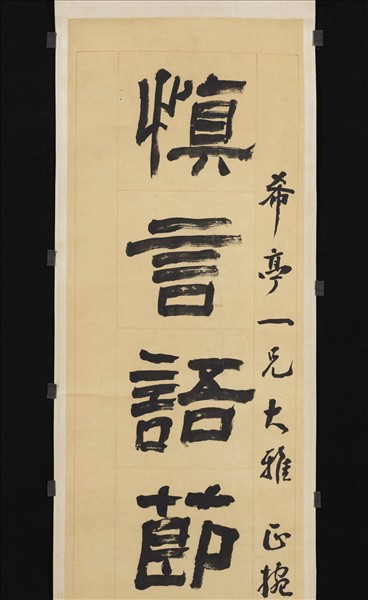 希亭一兄大雅 正
慎言語莭